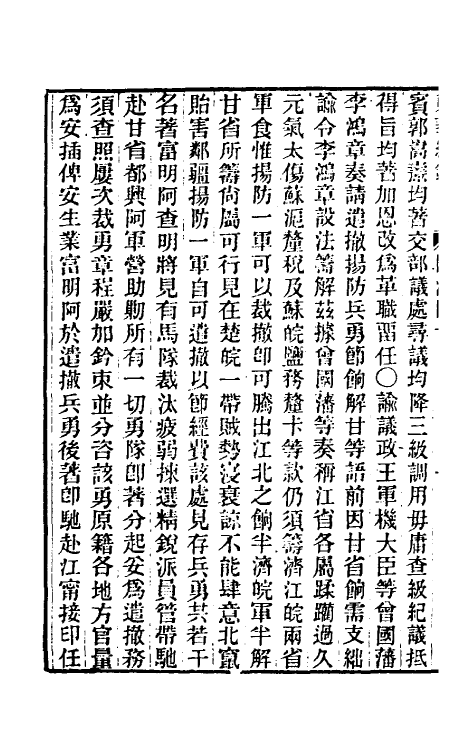 賓郭嵩燾均著交部議處尋議均降三級調用毋庸查級紀議抵
得旨均著加恩改爲革職留任〇諭議政王軍機大臣等曾國藩
李鴻章奏請遣撤揚防兵勇節餉解甘等語前因甘省餉需支絀
諭令李鴻章設法籌解茲據曾國藩等奏稱江省各屬蹂躪過久
元氣太傷蘇滬釐稅及蘇皖鹽務釐卡等款仍須籌濟江皖兩省
軍食惟揚防一軍可以裁撤卽可騰出江北之餉半濟皖軍半解
甘省所籌尚屬可行見在楚皖一帶賊勢寖衰諒不能肆意北竄
貽害鄰疆揚防一軍自可遣撤以節經費該處見存兵勇共若干
名著富明阿查明將見有馬隊裁汰疲弱揀選精銳派員管帶馳
赴甘省都興阿軍營助勦所有一切勇隊卽著分起妥爲遣撤務
須查照屢次裁勇章程嚴加鈐束並分咨該勇原籍各地方官量
爲安插俾安生業富明阿於遣撤兵勇後著卽馳赴江甯接印任